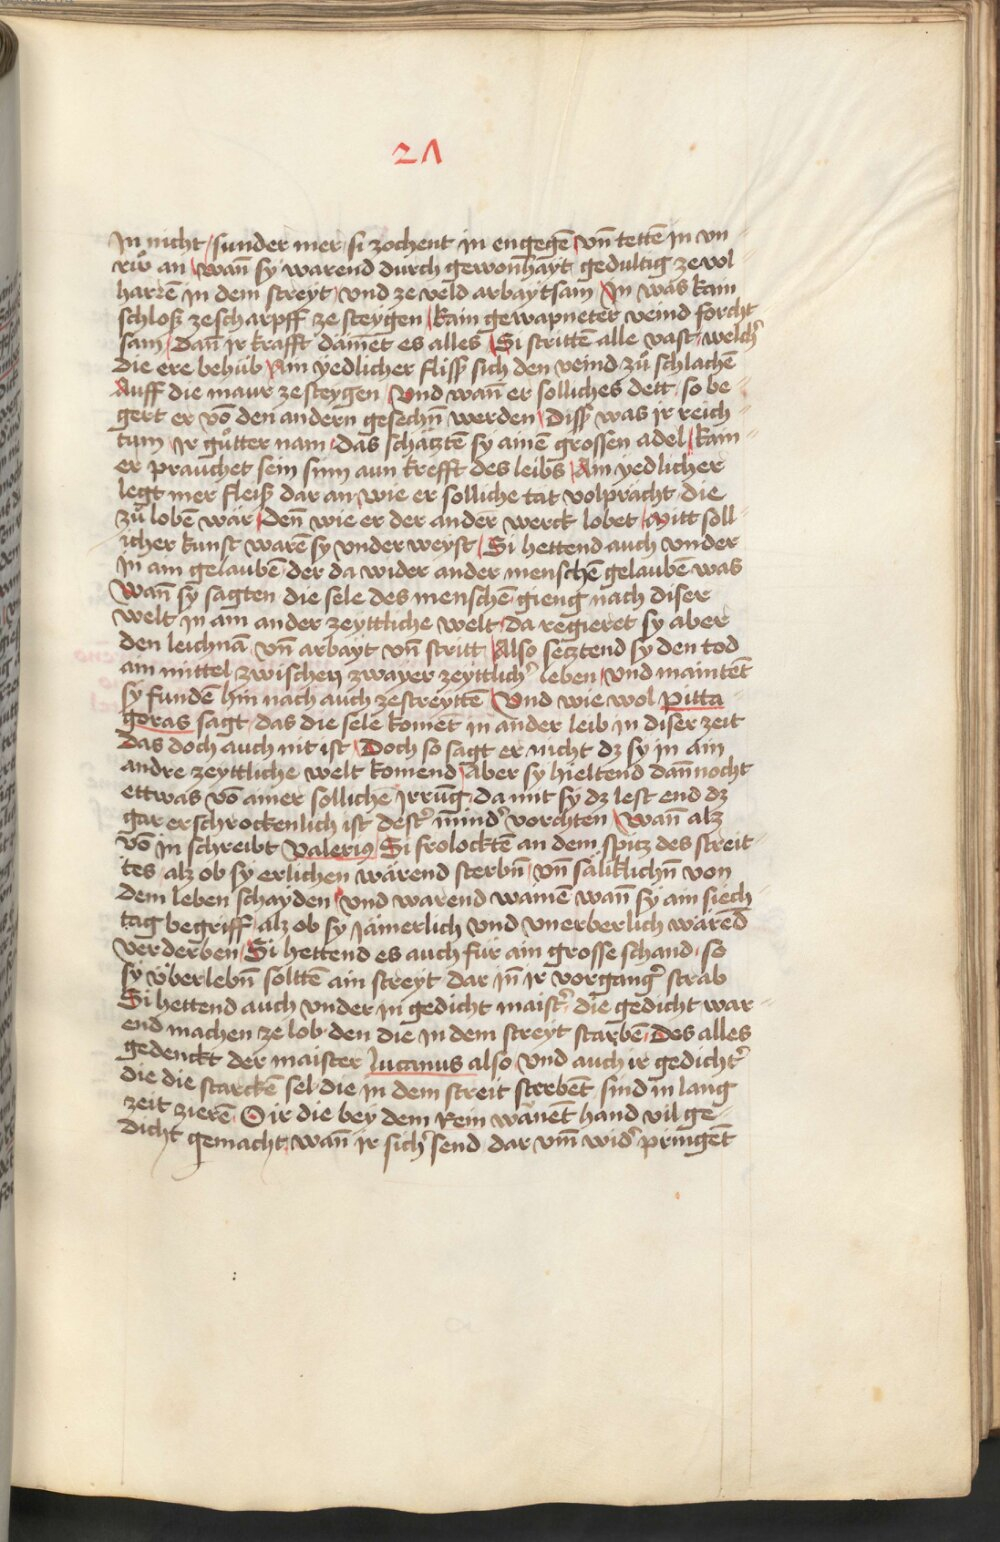 2Λ
In nicht / sunder mer / si zochent in engegē vn̄ tettē in vn⸗
rüͦ an / wan̄ sy warend durch gewonhayt gedultig ze vol
harrē in dem streyt / vnd ze veld arbaytsam / In was kain
schloß ze scharpff ze steygen / kain gewapneter veind forcht
sam / Dan̄ ir krafft dāmet es alles / Si strittē alle vast / welch̓
die ere behüb / Ain yedlicher flisß sich den veind zuͦ schlachē
Auff die maur ze steygen / Vnd wan̄ er solliches dett / so be⸗
gert er vō den andern gesechn̄ werden / Disß was ir reich⸗
tum / Ir guͤtter nam / das schatztē sy ainē grossen adel / kain⸗
er prauchet sein sinn aun krefft des leibs / Ain yedlicher
legt mer fleiß dar an / wie er solliche tat volpracht / die
zuͦ lobē wär / den̄ wie er der ander werck lobet / Mitt soll⸗
icher kunst warē sy vnder weyst / Si hettend auch vnder
In ain gelaubē / der da wider ander menschē gelaubē was
Wan̄ sy sagten / die sele des menschē gieng nach diser
welt in ain ander zeyttliche welt / da regieret sy aber
den leichnā / vn̄ arbayt vn̄ stritt / Also setztend sy den tod
ain mittel zwischen zwayer zeyttlich̓ leben / vnd maintēt
sy fundē hin nach auch ze streyttē / Vnd wie wol Pitta
goras sagt / das die sele komēt in ander leib in diser zeit
das doch auch nit ist / Doch so sagt er nicht dz sy in ain
andre zeyttliche welt komend / Aber sy hieltend dan̄nocht
ettwas vō ainer sollichē Irrūg / da mit sy dz lest end dz
gar erschrockenlich ist dest̓ mīnd̓ vorchten / Wan̄ alz
vō in schreibt Valerius / Si frolocktē an dem spitz des streit⸗
tes / alz ob sy erlichen wärend sterbn̄ / vn̄ säliklichn̄ von
dem leben schayden / vnd warend wainē wan̄ sy ain siech⸗
tag begriff / alz ob sy jämerlich vnd vnerberlich wärēd
verderben / Si hettend es auch für ain grosse schand / so
sy überlebn̄ solttē ain streyt / dar in̄ ir vorgang̓ strab
Si hettend auch vnder in gedicht maist̓ / die gedicht war⸗
end machen ze lob den die in dem streyt starbē / Des alles
gedenckt der maister Lucanus also / vnd auch ir gedicht̓
die die starckē sel / die in dem streit sterbēt / sind in lang
zeit zierē / O ir die bey dem Rein wanēt / hand vil ge⸗
dicht gemacht / wan̄ ir sich̓ send / dar vm̄ wid̓ pringēt